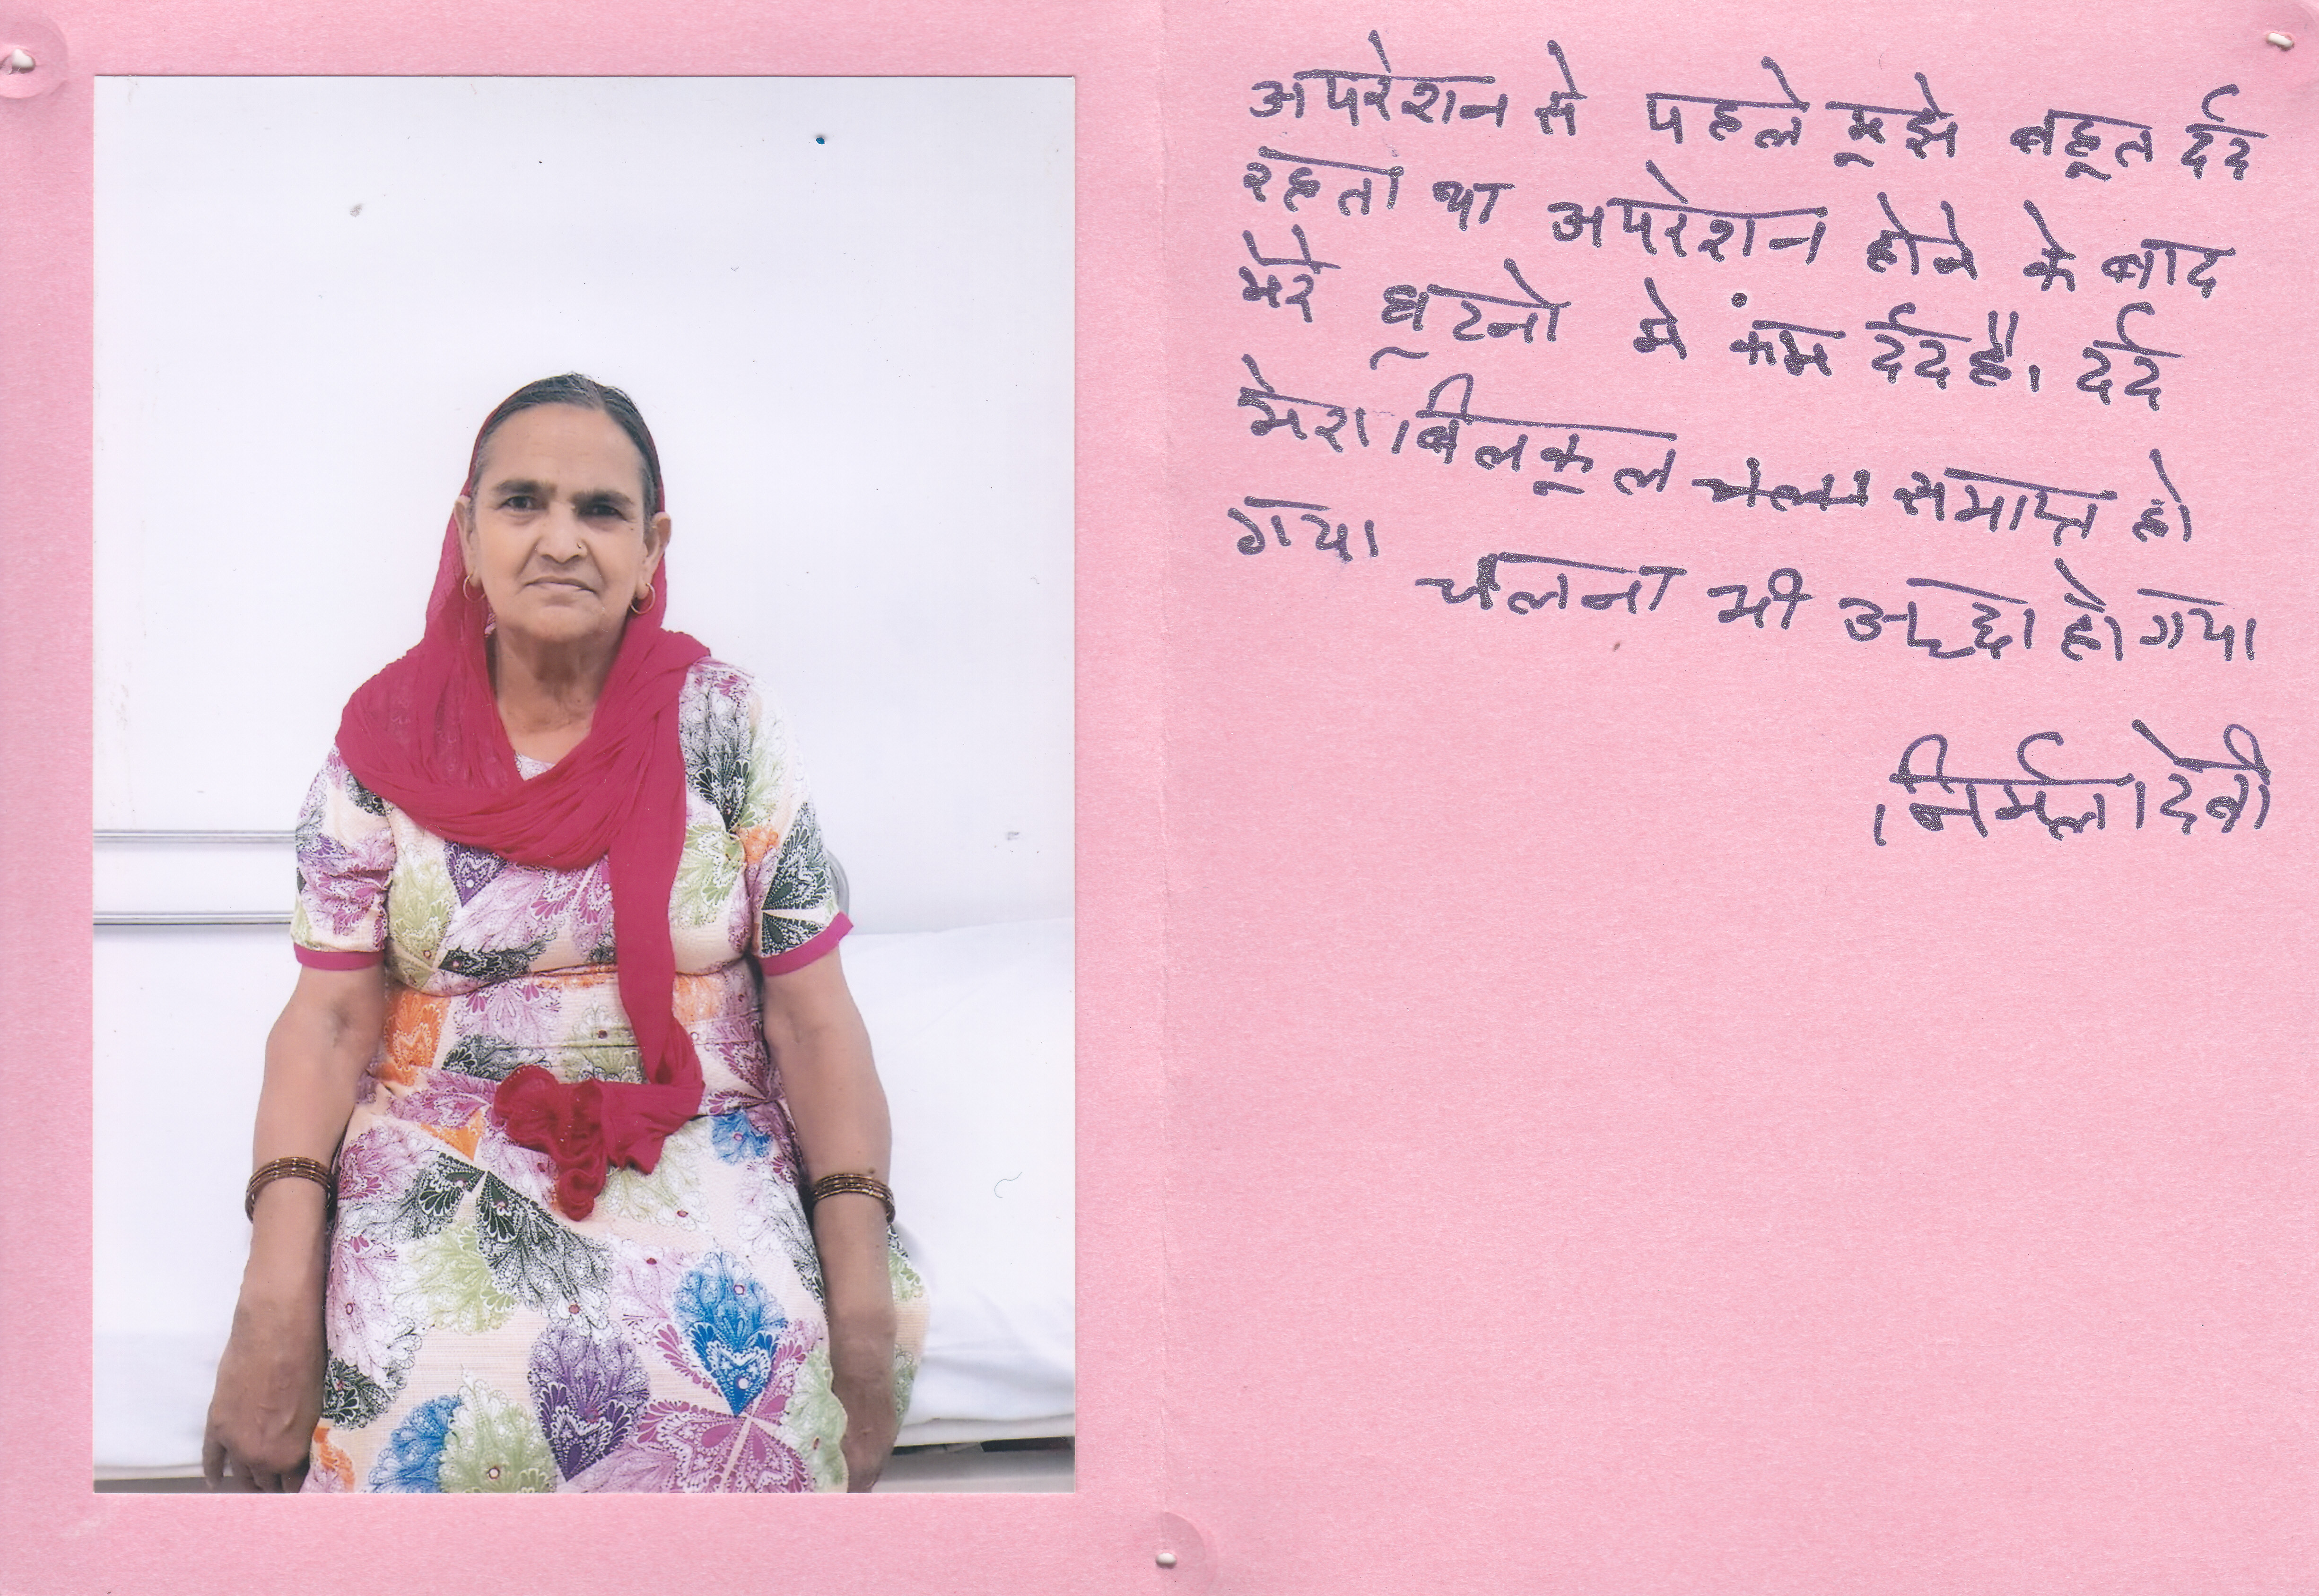 अपरेशन से पहले मूझे बहूत र्दद
रहता था अपरेशन होने के बाद
मेरे घूटनो मे कंम र्दद है। र्दद
मेरा बिलकूल समाप्त हो
गया चलना भी अच्छा हो गया
निर्मला देवी